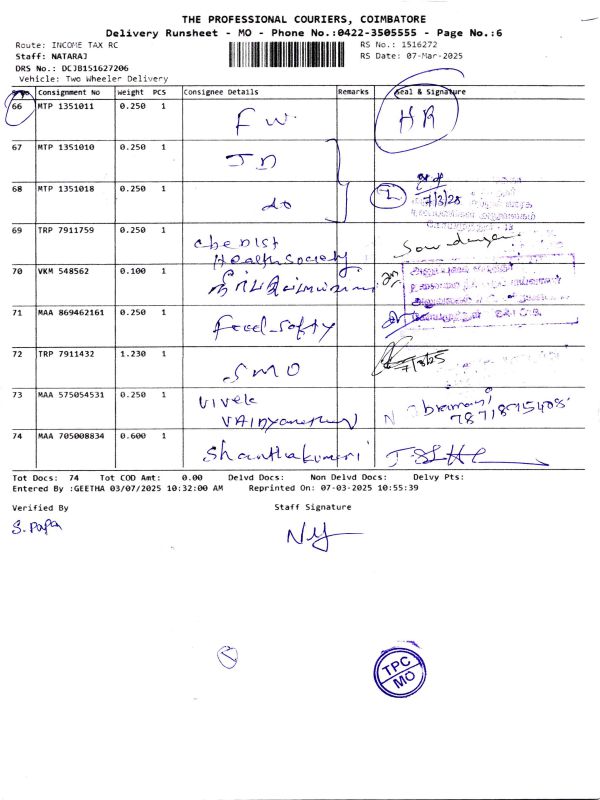 THE PROFESSIONAL COURIERS, COIMBATORE
Delivery Runsheet - MO - Phone No.:0422-3505555 - Page No.:6
Route: INCOME TAX RC
RS No.: 1516272
Staff: NATARAJ
RS Date: 07-Mar-2025
DRS No.: DCJB151627206
Vehicle: Two Wheeler Delivery
Consignment No Weight PCS Consignee Details Remarks Seal & Signature
66 MTP 1351011 0.250 1 F W. HR
67 MTP 1351010 0.250 1 JD
68 MTP 1351018 0.250 1 do 7/3/25
69 TRP 7911759 0.250 1 Chemist
Health Society
70 VKM 548562 0.100 1
71 MAA 869462161 0.250 1 Food-Safty
72 TRP 7911432 1.230 1 SMO 7/3/25
73 MAA 575054531 0.250 1 Vivek
74 MAA 705008834 0.600 1 Shanthakumari
Tot Docs: 74 Tot COD Amt: 0.00 Delvd Docs: Non Delvd Docs: Delvy Pts:
Entered By :GEETHA 03/07/2025 10:32:00 AM Reprinted On: 07-03-2025 10:55:39
Verified By Staff Signature
S. Papa
TPC
MO